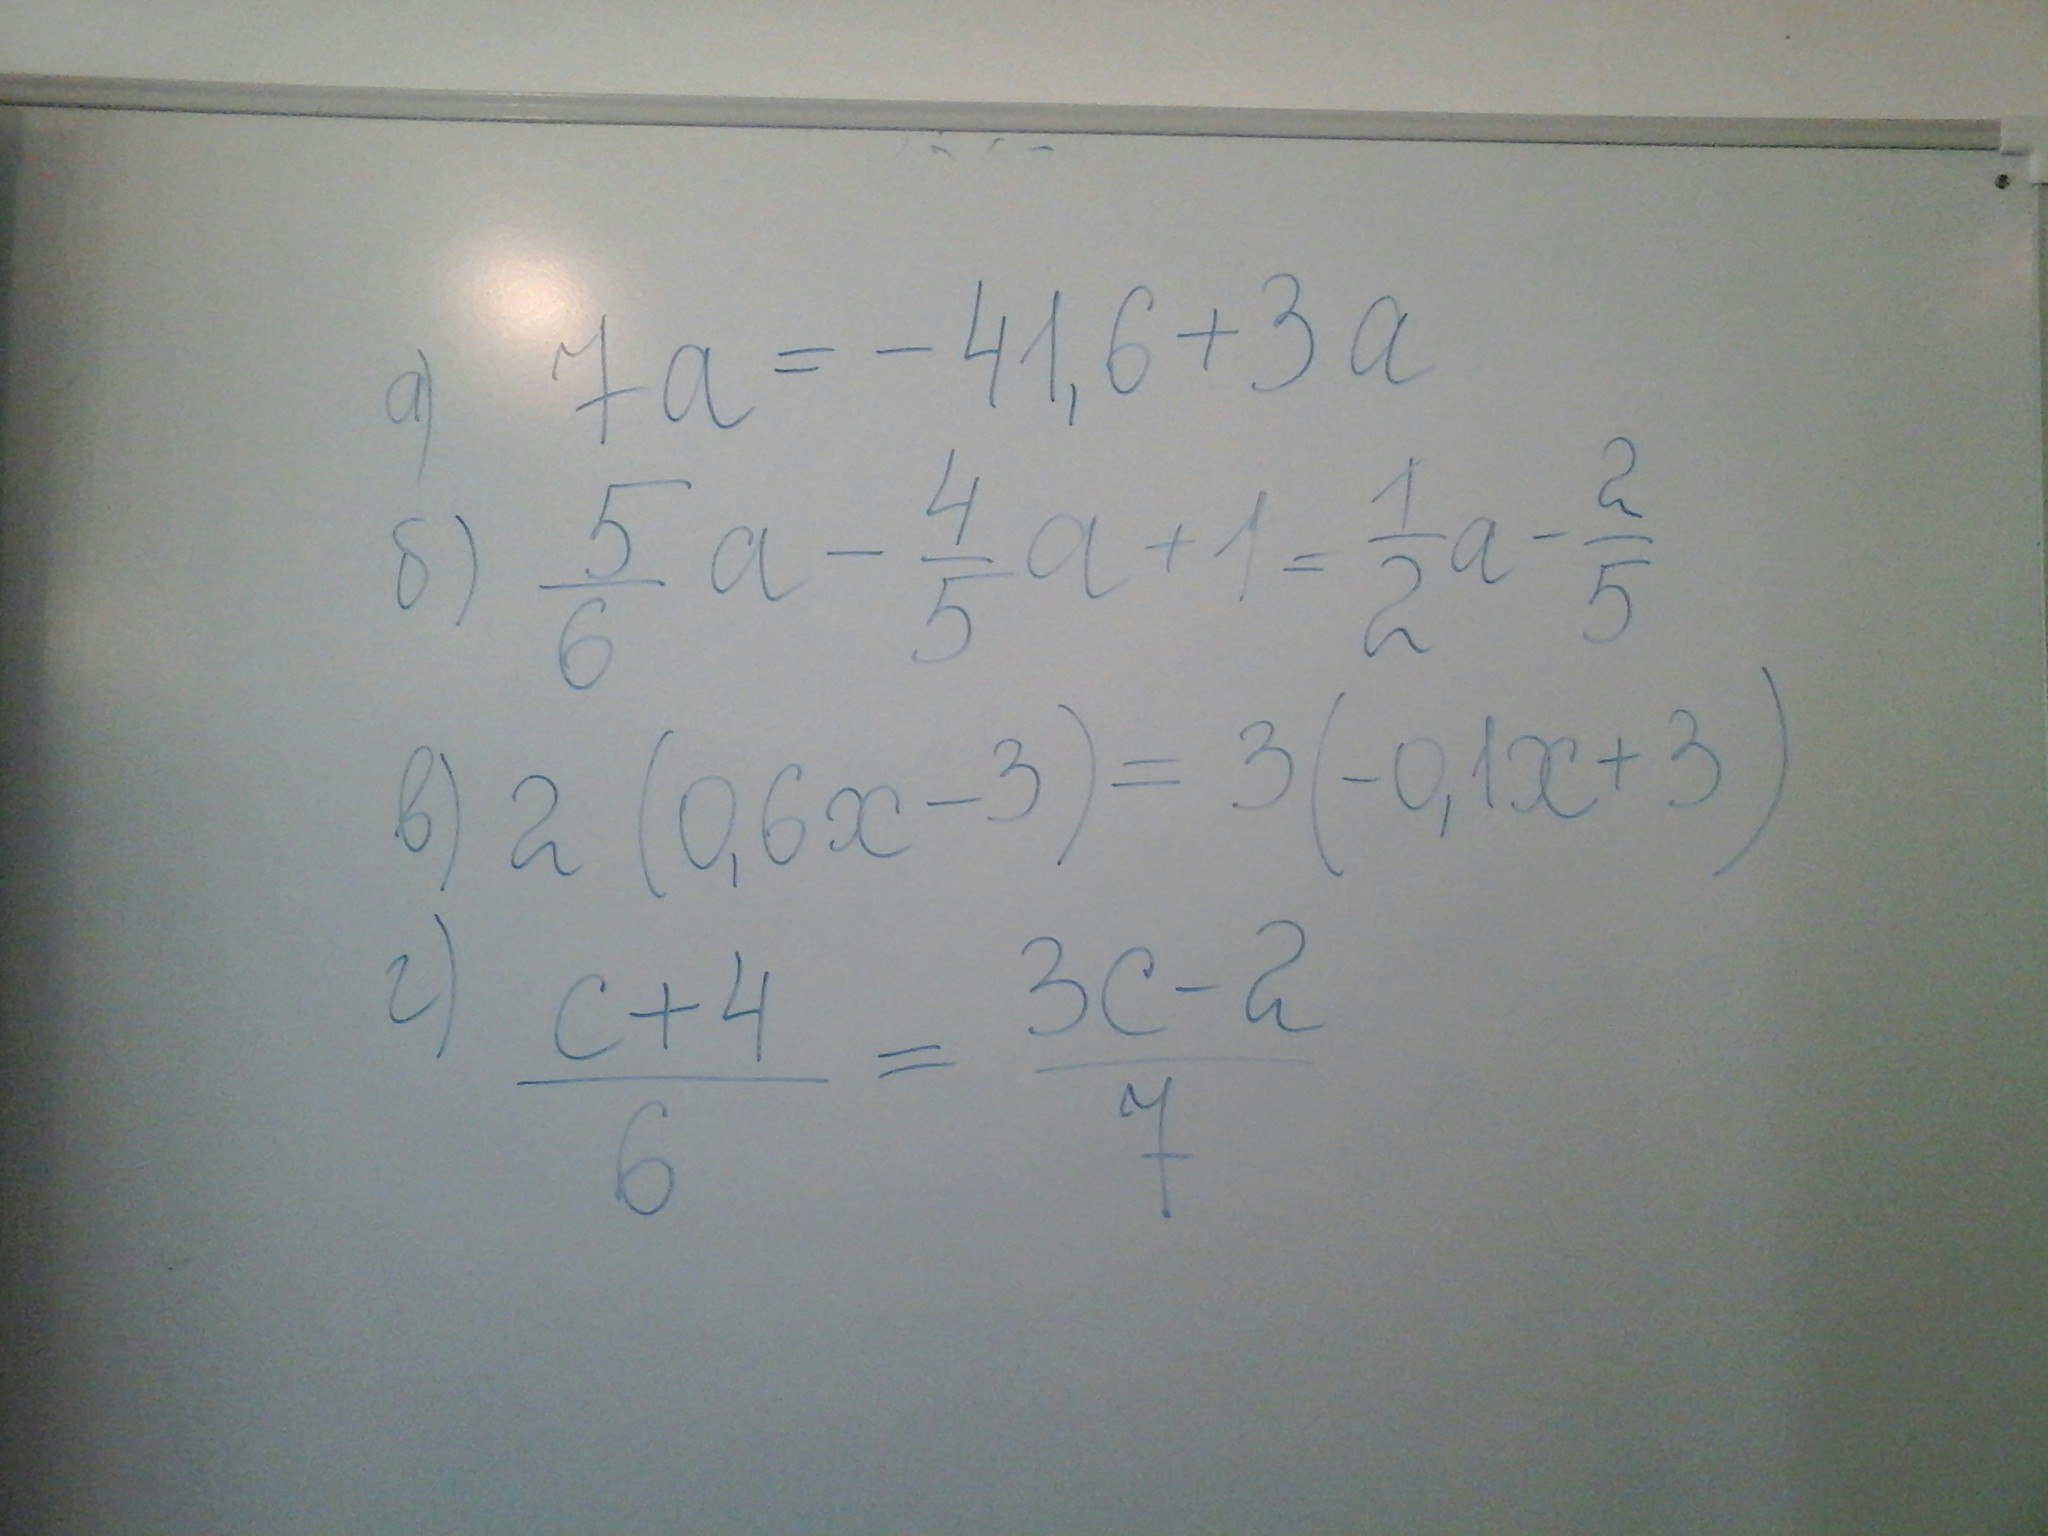 а) 7a = -41,6 + 3a
б) 5/6 a - 4/5 a + 1 = 1/2 a - 2/5
в) 2 (0,6x - 3) = 3 (-0,1x + 3)
г) c+4/6 = 3c-2/7